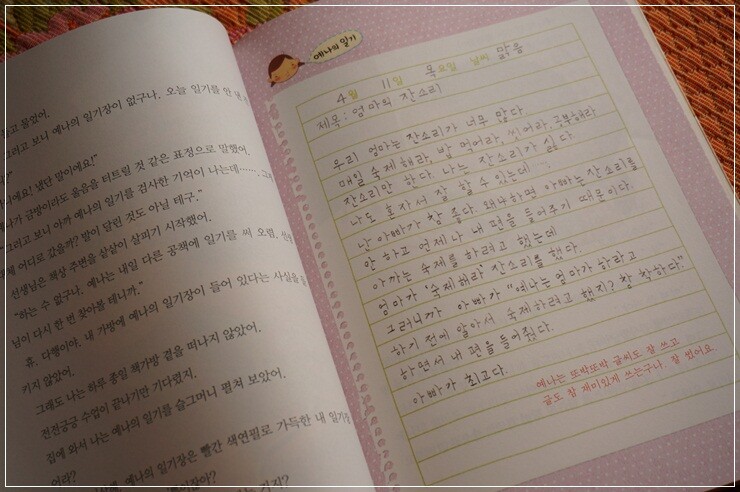 들고 물었어.
그러고 보니 예나의 일기장이 없구나. 오늘 일기를 안
냈단 말이에요!"
금방이라도 울음을 터트릴 것 같은 표정으로 말했어.
"그러고 보니 아까 예나의 일기를 검사한 기억이 나는데……
어디로 갔을까? 발이 달린 것도 아닐 테구."
선생님은 책상 주변을 샅샅이 살피기 시작했어.
"하는 수 없구나. 예나는 내일 다른 공책에 일기를 써 오렴.
님이 다시 한 번 찾아볼 테니까."
휴, 다행이야. 내 가방에 예나의 일기장이 들어 있다는 사실을
키지 않았어.
그래도 나는 하루 종일 책가방 곁을 떠나지 않았어.
전전긍긍 수업이 끝나기만 기다렸지.
집에 와서 나는 예나의 일기를 슬그머니 펼쳐 보았어.
예나의 일기장은 빨간 색연필로 가득한 내 일기장
어라?
예나의 일기
4월 11일 목요일 날씨 맑음
제목: 엄마의 잔소리
우리 엄마는 잔소리가 너무 많다.
매일 숙제해라, 밥 먹어라, 씻어라, 공부해라
잔소리만 한다. 나는 잔소리가 싫다.
나도 혼자서 잘 할 수 있는데…
난 아빠가 참 좋다. 왜냐하면 아빠는 잔소리를
안 하고 언제나 내 편을 들어주기 때문이다.
아까는 숙제를 하려고 했는데
엄마가 '숙제해라' 잔소리를 했다.
그러니까 아빠가 "예나는 엄마가 하라고
하기 전에 알아서 숙제하려고 했지? 참 착하다."
하면서 내 편을 들어줬다.
아빠가 최고다.
예나는 또박또박 글씨도 잘 쓰고
글도 참 재미있게 쓰는구나. 잘 썼어요.